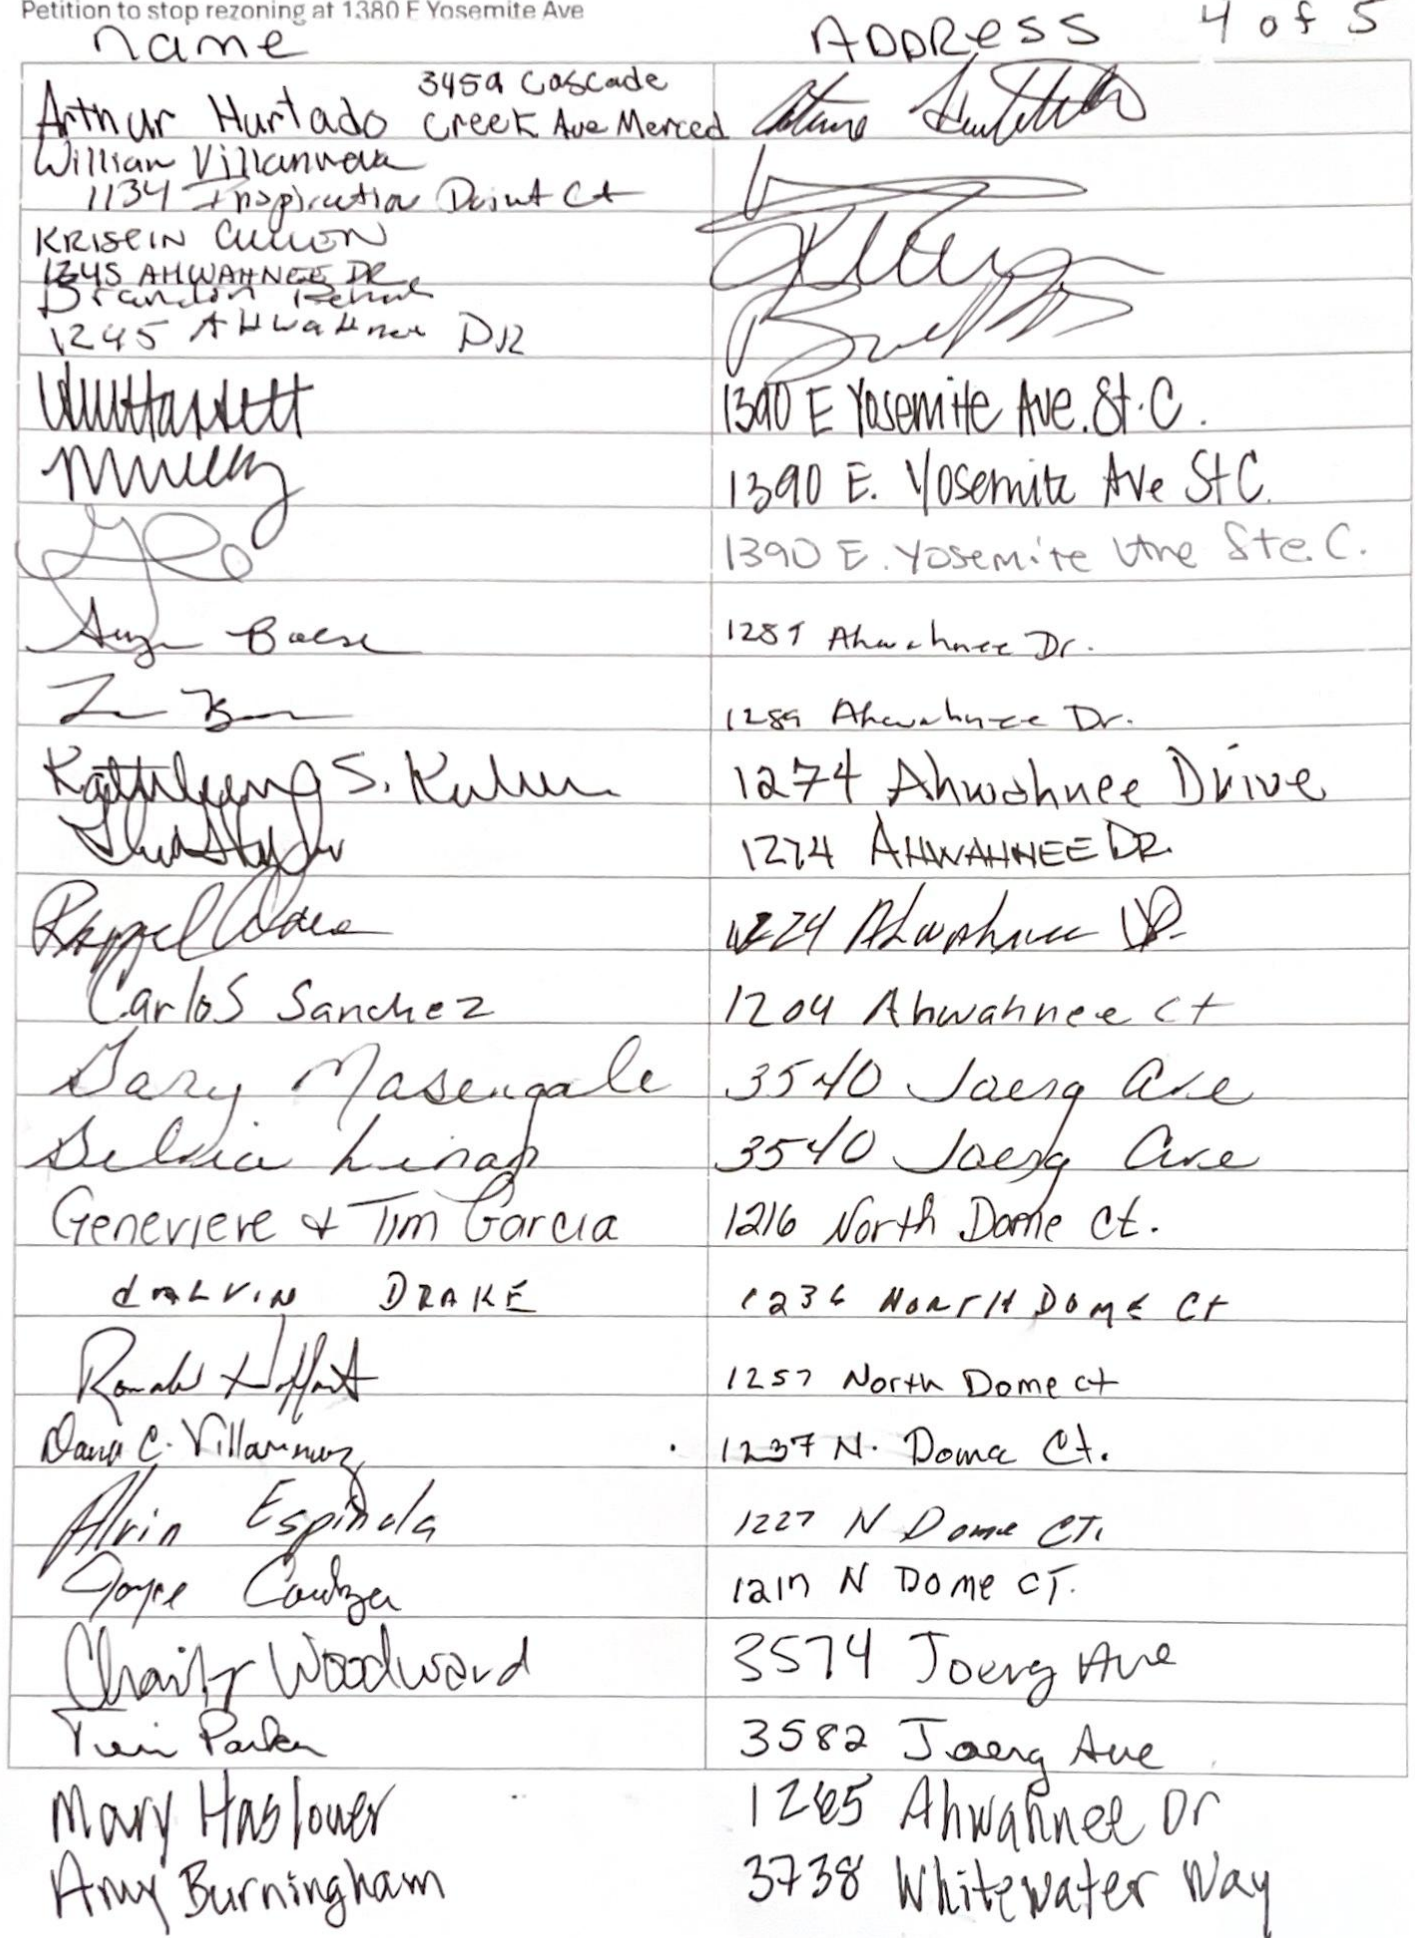 Petition to stop rezoning at 1380 E Yosemite Ave
name ADDRess 4 of 5
3459 Cascade
Arthur Hurtado Creek Ave Merced
Willian Villanueva
1134 Inspiration Point Ct
KRISEIN CULLEN
1345 AHWAHNEE DR
Brandon
1245 AHwaHnee DR
1390 E Yosemite Ave. St. C.
1390 E. Yosemite Ave St C.
1390 E. Yosemite Ste. C.
1289 Ahwahnee Dr.
1289 Ahwahnee Dr.
Kathleen S. 1274 Ahwahnee Drive
1274 AHWAHNEE DR.
1224 Ahwahnee
Carlos Sanchez 1204 Ahwahnee ct
Gary Masengale 3540 Joerg Ave
3540 Joerg Ave
Genevieve & Tim Garcia 1216 North Dome Ct.
dALVIN DRAKE 1236 NORTH DOME Ct
Ronald 1257 North Dome ct
C. 1237 N. Dome Ct.
Alvin Espinola 1227 N Dome CT.
Joyce 1217 N DOMe CT.
Charity Woodward 3574 Joerg Ave
Parker 3582 Joerg Ave
Mary Haslouer 1265 Ahwahnee Dr
Amy Burningham 3738 Whitewater Way